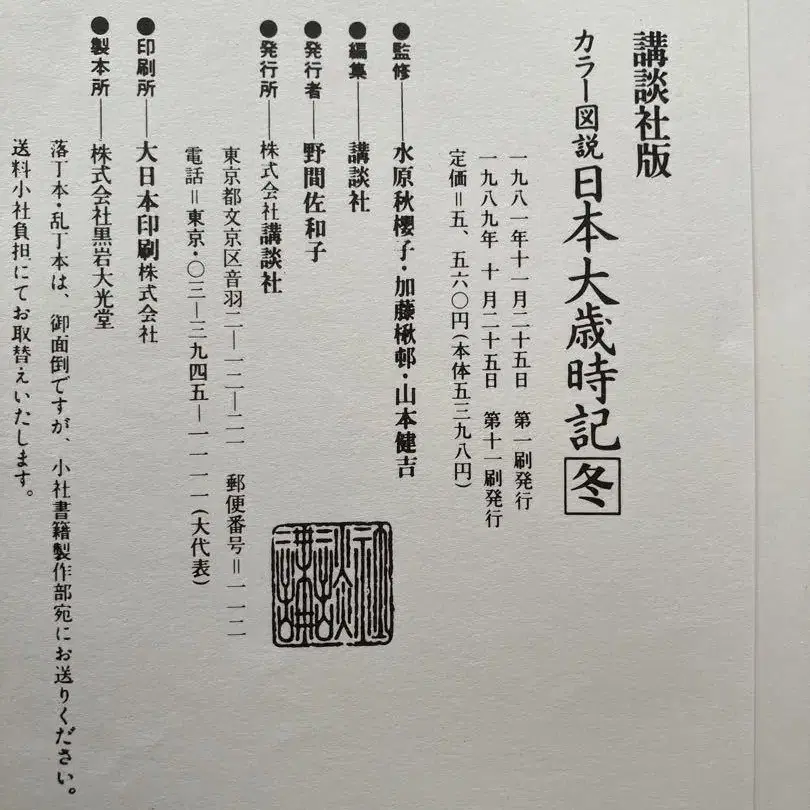 講談社版
カラー図説日本大歳時記 冬
一九八一年十一月二十五日 第一刷発行
一九八九年 十 月二十五日 第十一刷発行
定価=五、五六〇円(本体五三九八円)
●監修――水原秋櫻子・加藤楸邨・山本健吉
●編集――講談社
●発行者――野間佐和子
●発行所――株式会社講談社
東京都文京区音羽二―一二―二一 郵便番号=一一二
電話=東京・〇三―三九四五―一一一一(大代表)
●印刷所――大日本印刷株式会社
●製本所――株式会社黒岩大光堂
落丁本・乱丁本は、御面倒ですが、小社書籍製作部宛にお送りください。
送料小社負担にてお取替えいたします。
講談社